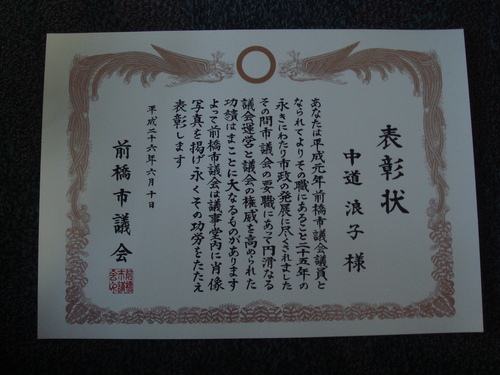 表彰状
中道浪子様
あなたは平成元年前橋市議会議員と
なられてよりその職にあること二十五年の
永きにわたり市政の発展に尽くされました
その間市議会の要職にあって円滑なる
議会運営と議会の権威を高められた
功績はまことに大なるものがあります
よって前橋市議会は議事堂内に肖像
写真を掲げ永くその功労をたたえ
表彰します
平成二十六年六月十日
前橋市議会